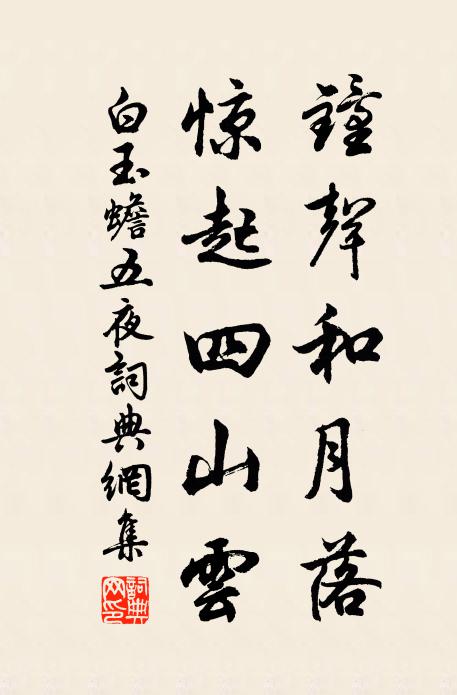 鐘聲和月落
惊起四山雲
白玉蟾五夜詞典網集
詞典網印